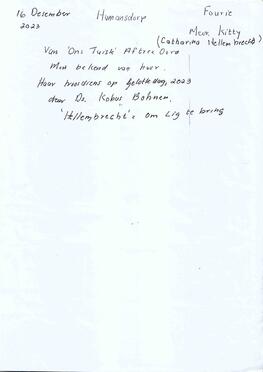 16 Desember Humansdorp Fourie
2023 Mev. Kitty
(Catharina Hellembrecht)
Van 'Ons Tuiste' Aftree Oord
Min bekend van haar.
Haar troudiens op Geloftedag, 2023
deur Ds. Kobus Bohnen.
'Hellembrecht's om lig te bring